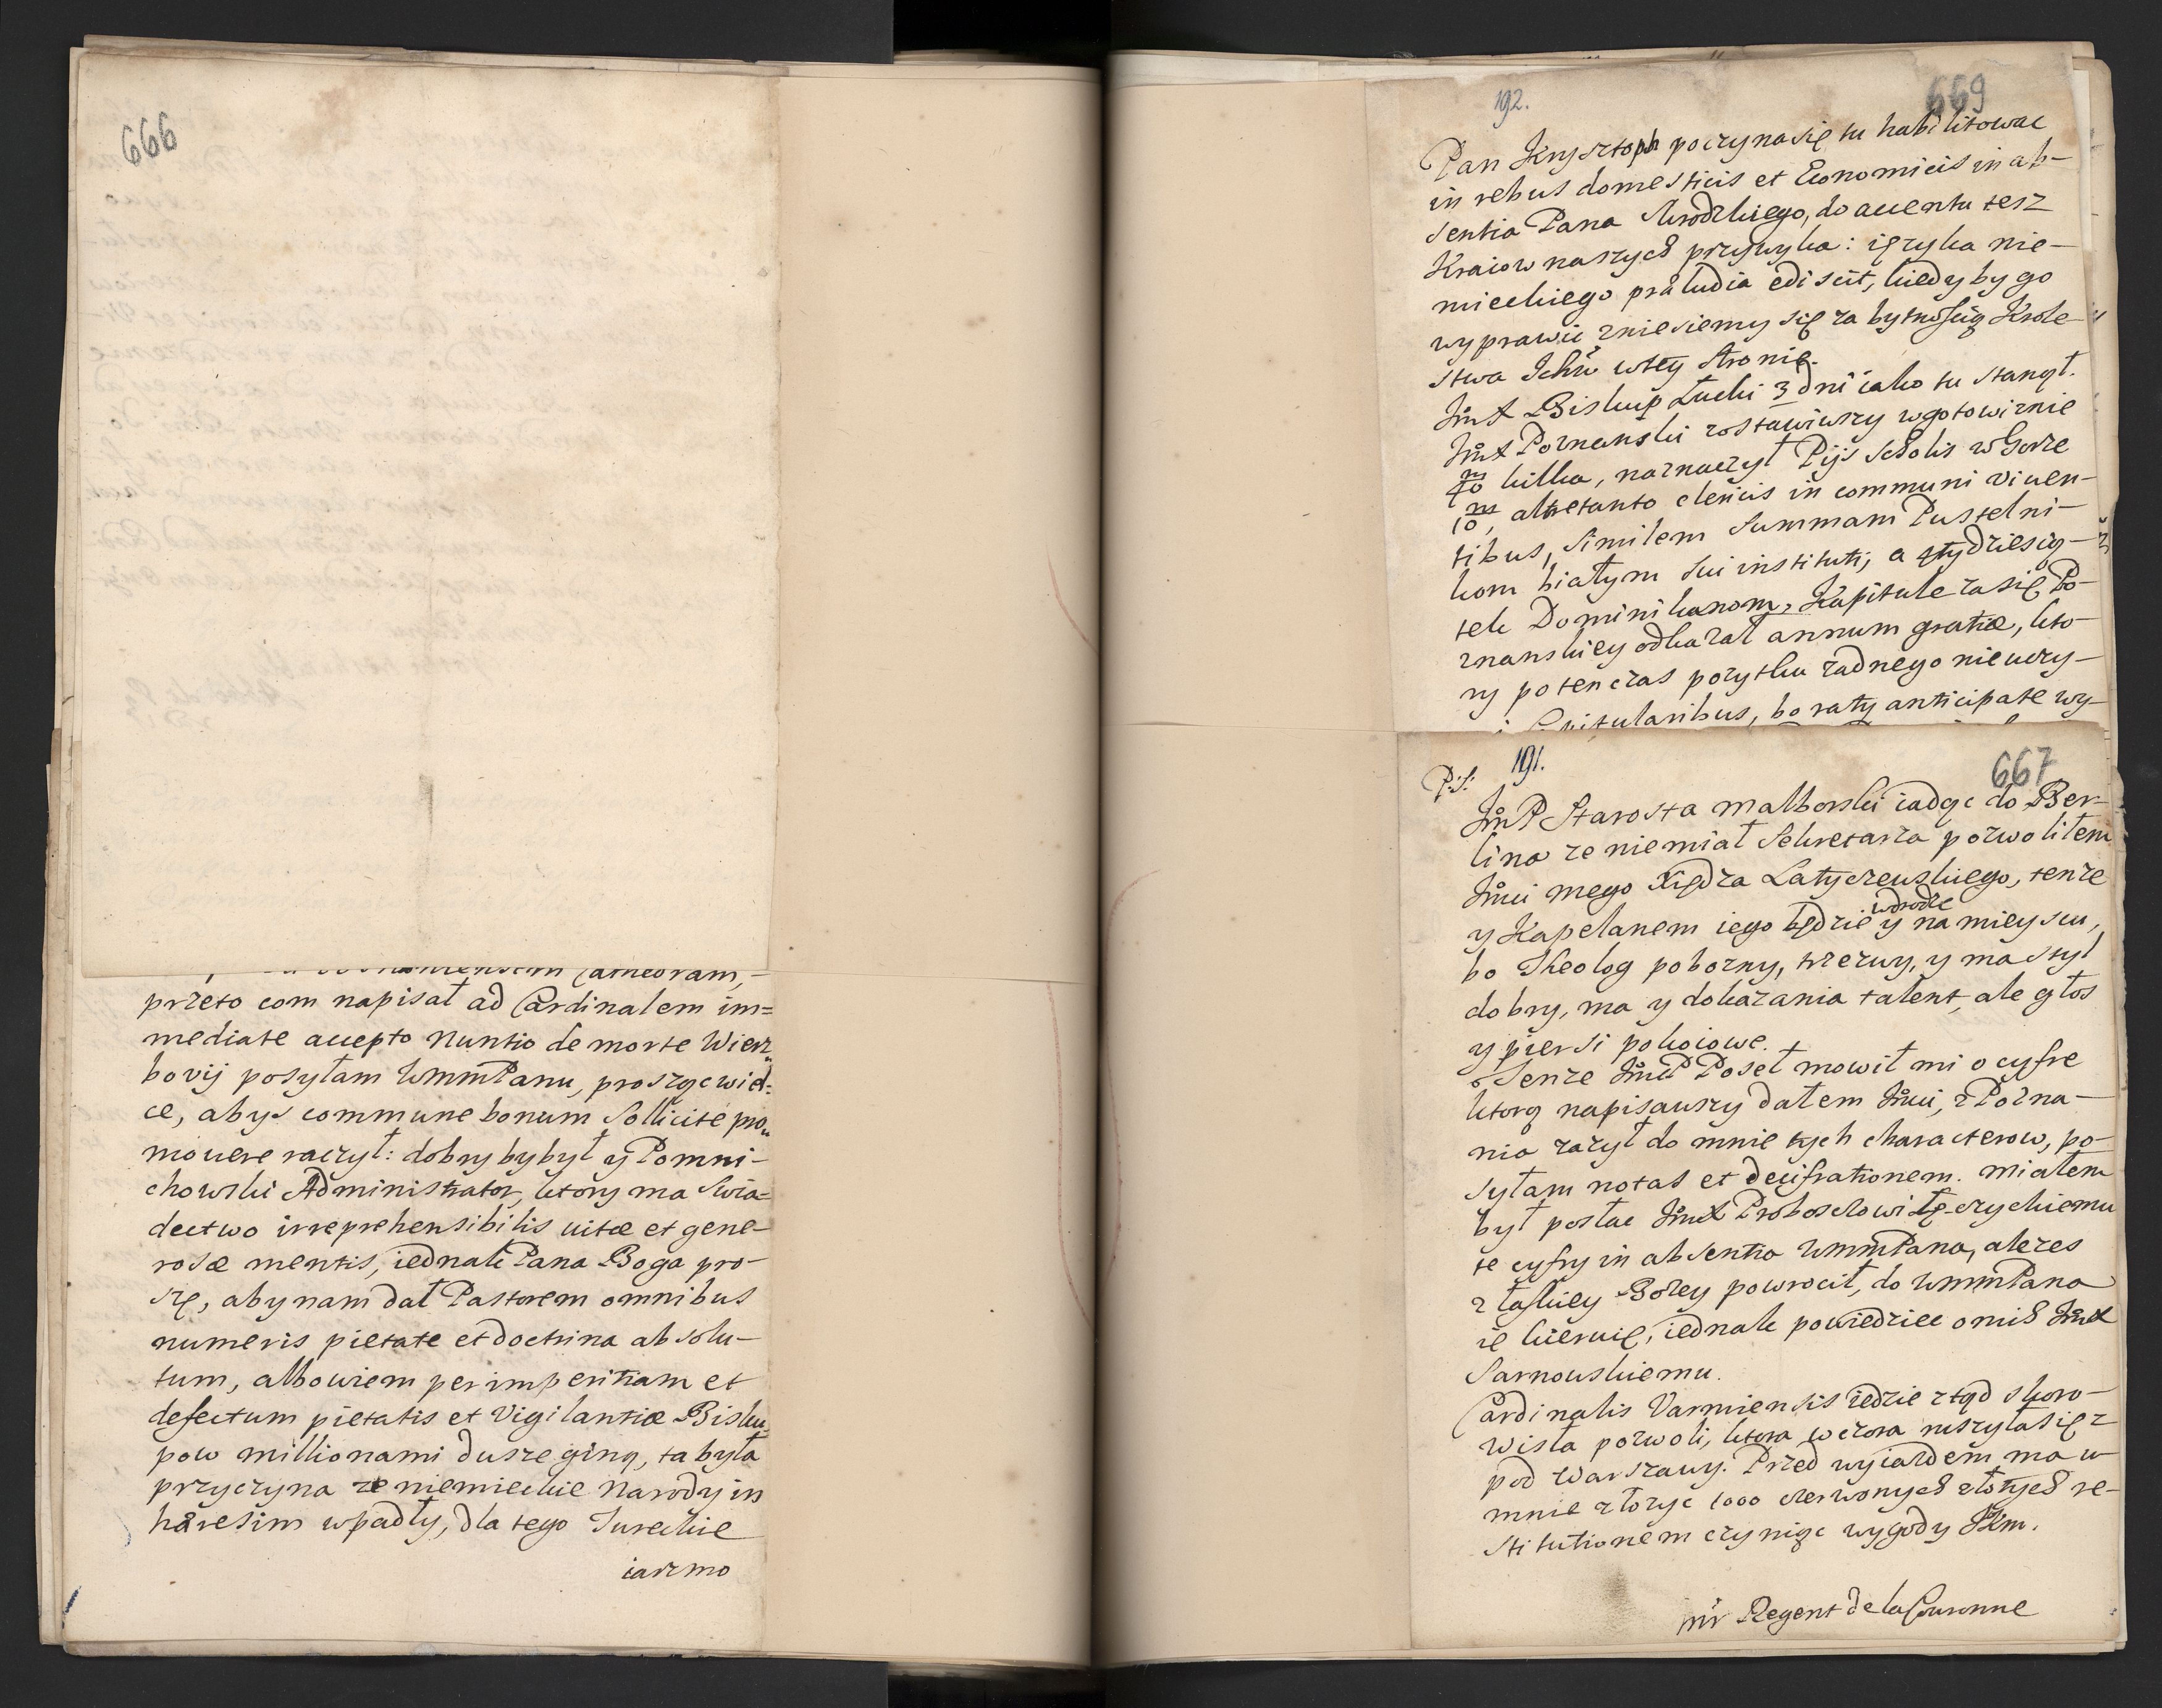 666
przeto com napisał ad Cardinalem im=
mediate accepto nuntio de morte Wierz„
bovij posyłam WmmPanu, proszącwiel:
ce, abys commune bonum sollicite pro„
mouere raczył: dobry by był y Pomni-
chowski Administrator, ktory ma swia=
dectwo irreprehensibilis uitæ et gene-
rosæ mentis, iednak Pana Boga pro-
szę, aby nam dał Pastorem omnibus
numeris pietate et doctrina absolu-
tum, albowiem per imperitiam et
defectum pietatis et Vigilantiæ Bisku„
pow millionami dusze giną, ta była
przyczyna ze niemieckie Narody in
hæresim wpadły, dla tego Tureckie
iarzmo
192.
669
Pan Krysztoph poczyna się tu habilitowac
in rebus domesticis et Economicis in ab-
sentia Pana Skrodzkiego, do accentu tesz
Kraiow naszych przywyka: ięzyka nie-
mieckiego præludia ediscit, kiedy by go
wyprawic zniesiemy się za bytnoscią Krole-
stwa Ichm̃ wtey stronie.
JmX Biskup Łucki 3 dni iako tu stanął.
JmX Poznanski zostawiwszy wgotowiznie
40/m kilka, naznaczył Pijs Scholis w Gorze
10/m, altretanto clericis in communi viuen-
tibus, similem summam Pustelni-
kom białym sui instituti, a czydziesią-
tek Dominikanom, Kapitule zasię Po-
znanskiey odkazał annum gratiæ, kto-
ry poten czas pozytku zadnego nie uczy-
Capitularibus, bo raty anticipate wy-
191.
667
P.S.
JmP Starosta malborski iadąc do Ber-
lina ze niemiał Sekretarza pozwoliłem
Jmci mego Xiędza Latyczewskiego, tenze
y Kapelanem iego będzie wdrodze y na mieyscu,
bo Theolog pobozny, trzezwy, y ma styl
dobry, ma y dokazania talent, ale głos
y piersi pokoiowe.
Tenze JmP Poseł mowił mi o cyfre
ktorą napisawszy dałem Jmci, z Pozna-
nia zazył do mnie tych characterow, po-
syłam notas et decifrationem. miałem
był posłac JmX Proboszczowi Łęczyckiemu
te cyfry in absentia WmmPana, ale zes
z łaskiey Bozey powrocił, do WmmPana
ie kieruię, iednak powiedziec o nich JmX
Sarnowskiemu.
Cardinalis Varmiensis iedzie ztąd skoro
Wisła pozwoli, ktora wczora ruszyła się z
pod Warszawy. Przed wyiazdem ma u
mnie złozyc 1000 czerwonych złotych re-
stitutionem czyniąc wygody Jkm.
mr Regent de la Couronne